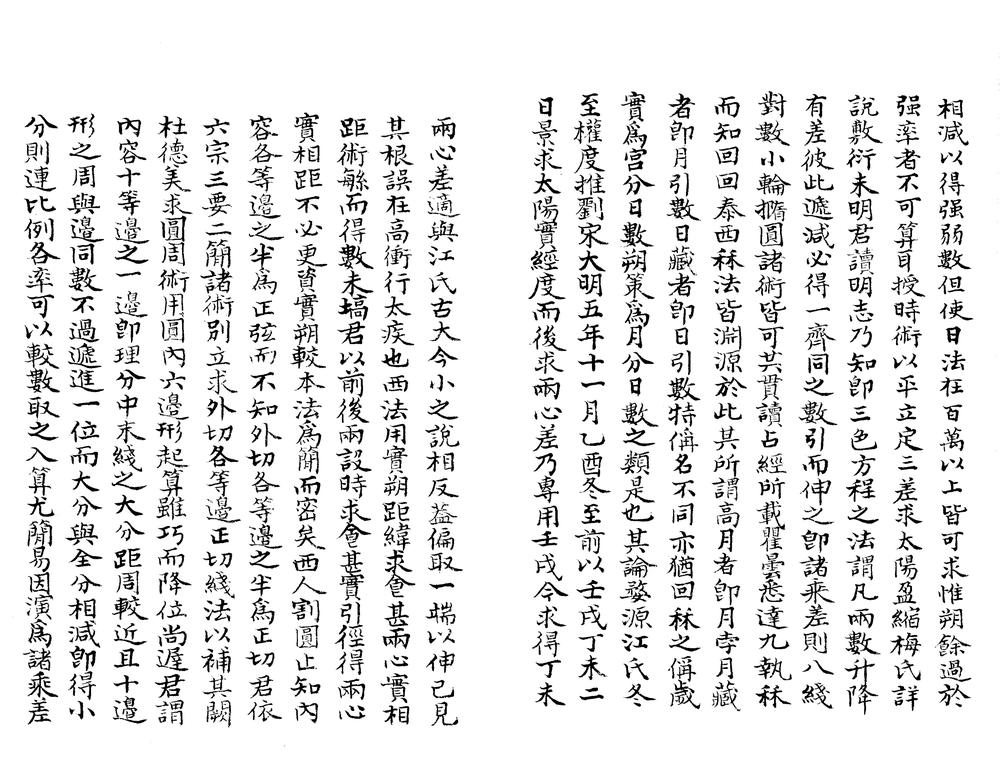 相減以得强弱數但使日法在百萬以上皆可求惟朔餘過於
强率者不可算耳授時術以平立定三差求太陽盈縮梅氏詳
說敷衍未明君讀明志乃知卽三色方程之法謂凡兩數升降
有差彼此遞減必得一齊同之數引而伸之卽諸乘差則八綫
對數小輪撱圓諸術皆可共貫讀占經所載瞿曇悉達九執秝
而知回回泰西秝法皆淵源於此其所謂高月者卽月孛月藏
者卽月引數日藏者卽日引數特偁名不同亦猶回秝之偁歲
實爲宮分日數朔策爲月分日數之類是也其論婺源江氏冬
至權度推劉宋大明五年十一月乙酉冬至前以壬戌丁未二
日景求太陽實經度而後求兩心差乃專用壬戌今求得丁未
兩心差適與江氏古大今小之說相反葢偏取一端以伸已見
其根誤在高衝行太疾也西法用實朔距緯求食甚兩心實相
距術緐而得數未塙君以前後兩設時求食甚實引徑得兩心
實相距不必更資實朔較本法爲簡而密矣西人割圓止知內
容各等邊之半爲正弦而不知外切各等邊之半爲正切君依
六宗三要二簡諸術別立求外切各等邊正切綫法以補其闕
杜德美求圓周術用圓內六邊形起算雖巧而降位尚遲君謂
內容十等邊之一邊卽理分中末綫之大分距周較近且十邊
形之周與邊同數不過遞進一位而大分與全分相減卽得小
分則連比例各率可以較數取之入算尤簡易因演爲諸乘差